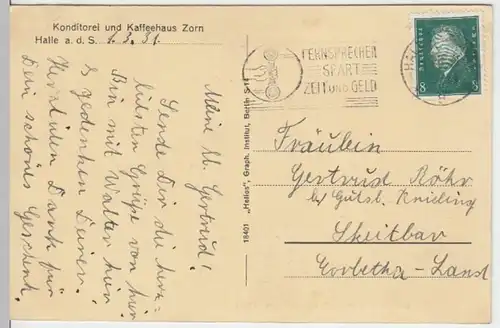 Konditorei und Kaffeehaus Zorn
Halle a. d. S. 1. 3. 31.
Meine lb. Gertrud!
Sende Dir die herz-
lichsten Grüße von hier
Bin mit Walter hier
& gedenken Deiner.
Herzl. vielen Dank für
Dein schönes Geschenk.
18401 „Helios“, Graph. Institut, Berlin
FERNSPRECHEN
SPART
ZEIT UND GELD
8 8
Fräulein
Gertrud Röhr
b/ Gutsb. Knieling
Corbetha-Land